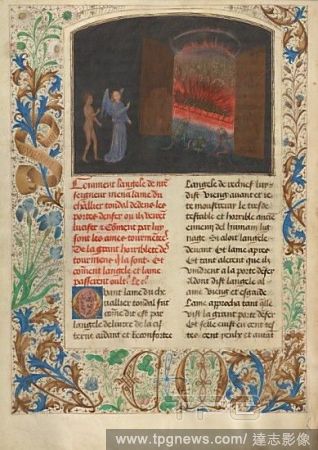 Comment langele de nre
seigneur mena lame du
cheualier tondal dedens les
portes denfer ou ilz virent
lucifer Et coment par luy
sont les ames tourmentees
De la grant horriblete de
tourmens qui la sont Et
coment langele et lame
passerent oultre
Quant lame du che
uallier tondal fut
come dit est par
langele deliuree de la cis
terne aidant et reconfortee
Langele de rechief luy
dist vieng auant et ie
te monstreray le tresde
testable et horrible ancie
ennemy del humain lig
nage Et aloit langele
deuant et lame apres
Et tant alerent que ilz
vindrent a la porte denfer
Adont dist langele al
ame vieng et esgarde
Lame approcha tant que
vist la grant porte denfer
Et se elle eust en cent tes
tes cent yeulx et autant
www.tpgnews.com / 達志影像